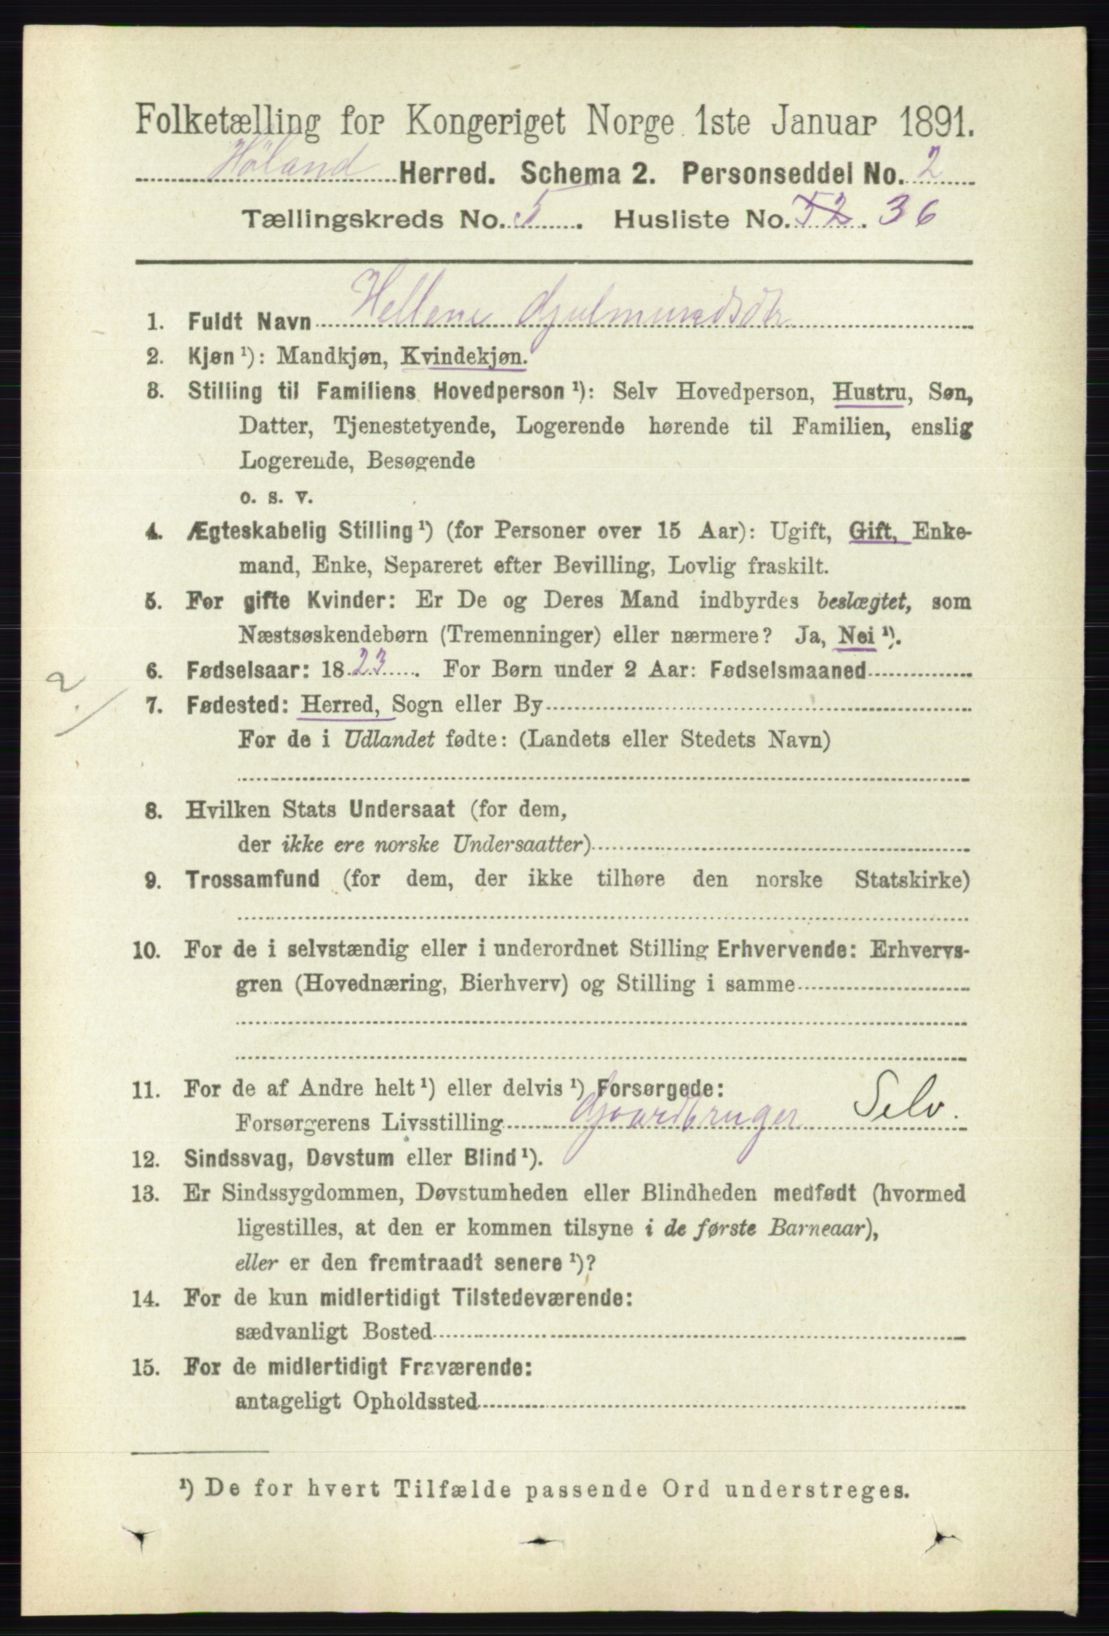 Folketælling for Kongeriget Norge 1ste Januar 1891.
Høland Herred. Schema 2. Personseddel No. 2
Tællingskreds No. 5. Husliste No. 52. 36
1. Fuldt Navn Hellene Gjulmundsdtr
2. Kjøn ¹): Mandkjøn, Kvindekjøn.
3. Stilling til Familiens Hovedperson ¹): Selv Hovedperson, Hustru, Søn,
Datter, Tjenestetyende, Logerende hørende til Familien, enslig
Logerende, Besøgende
o. s. v.
4. Ægteskabelig Stilling ¹) (for Personer over 15 Aar): Ugift, Gift, Enke-
mand, Enke, Separeret efter Bevilling, Lovlig fraskilt.
5. For gifte Kvinder: Er De og Deres Mand indbyrdes beslægtet, som
Næstsøskendebørn (Tremenninger) eller nærmere? Ja, Nei ¹).
6. Fødselsaar: 1823. For Børn under 2 Aar: Fødselsmaaned
2
7. Fødested: Herred, Sogn eller By
For de i Udlandet fødte: (Landets eller Stedets Navn)
8. Hvilken Stats Undersaat (for dem,
der ikke ere norske Undersaatter)
9. Trossamfund (for dem, der ikke tilhøre den norske Statskirke)
10. For de i selvstændig eller i underordnet Stilling Erhvervende: Erhvervs-
gren (Hovednæring, Bierhverv) og Stilling i samme
11. For de af Andre helt ¹) eller delvis ¹) Forsørgede:
Forsørgerens Livsstilling Gjaardbruger Selv.
12. Sindssvag, Døvstum eller Blind ¹).
13. Er Sindssygdommen, Døvstumheden eller Blindheden medfødt (hvormed
ligestilles, at den er kommen tilsyne i de første Barneaar),
eller er den fremtraadt senere ¹)?
14. For de kun midlertidigt Tilstedeværende:
sædvanligt Bosted
15. For de midlertidigt Fraværende:
antageligt Opholdssted
¹) De for hvert Tilfælde passende Ord understreges.